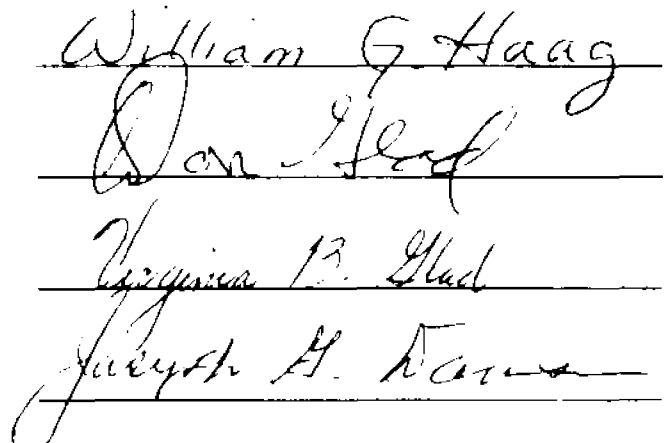 William G. Haag
Don Glad
Virginia B. Glad
Joseph G.